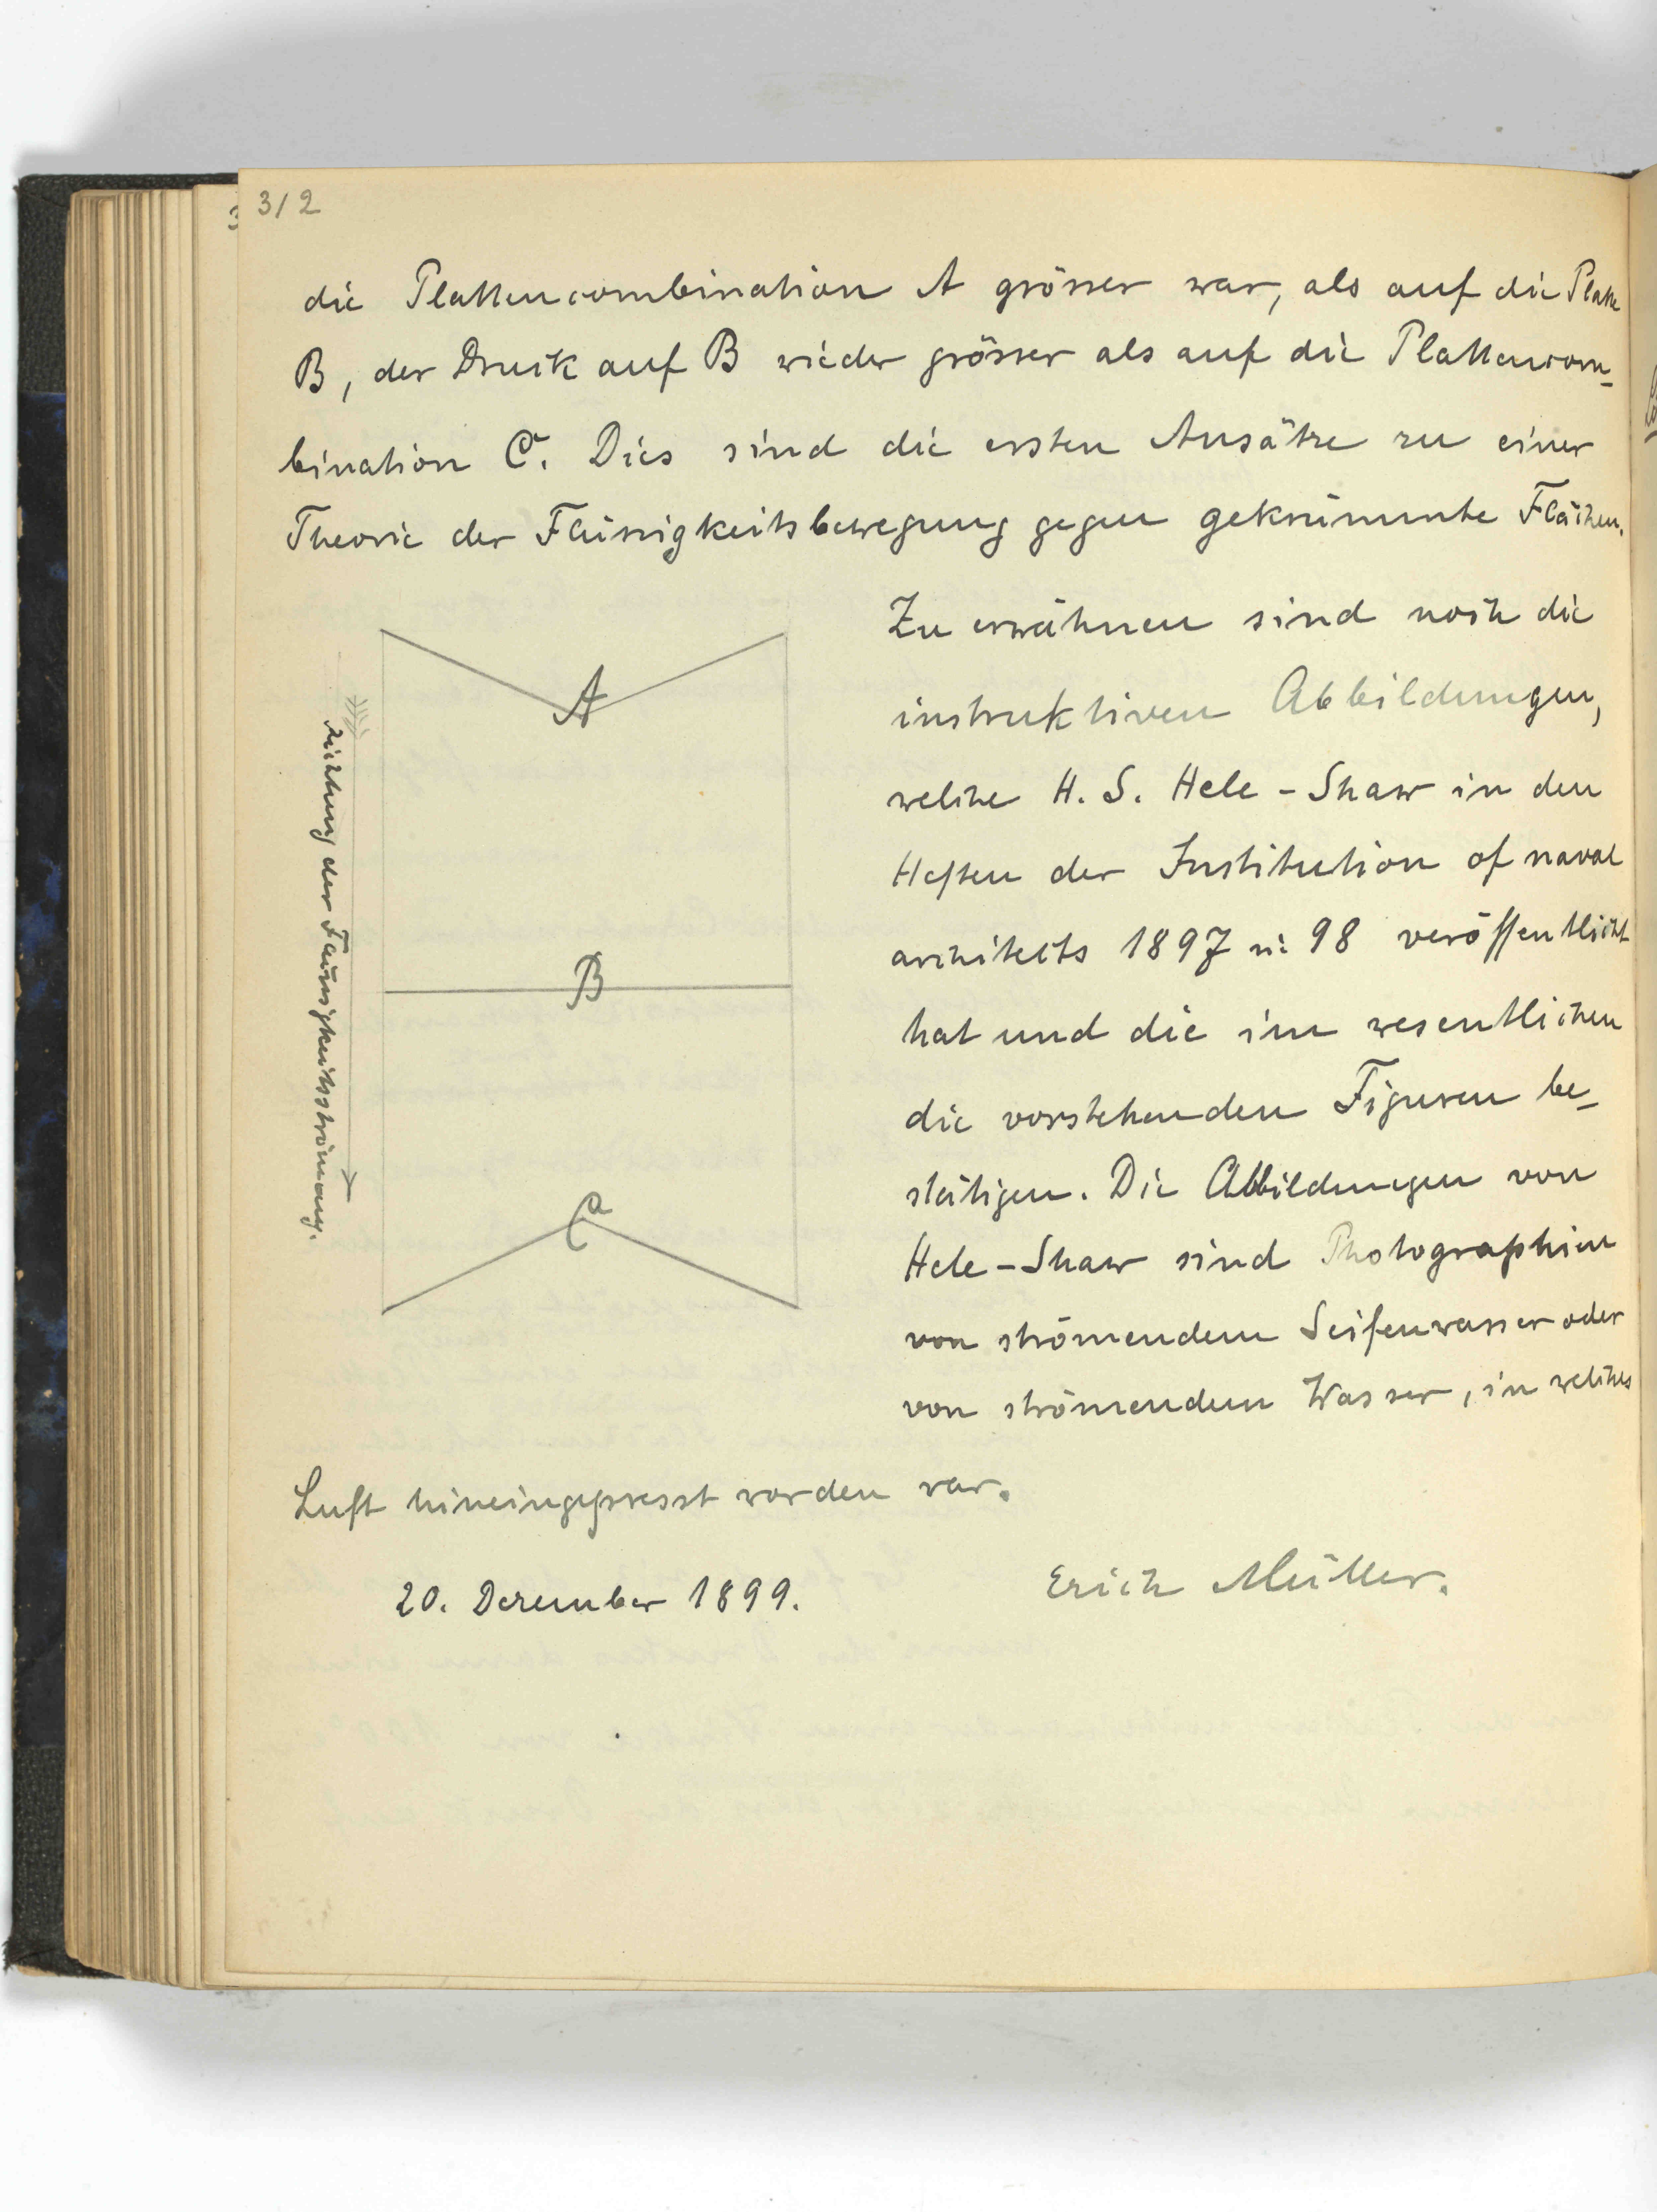 312
die Plattencombination A grösser war, als auf die Platte
B, der Druck auf B wieder grösser als auf die Plattencom-
bination C. Dies sind die ersten Ansätze zu einer
Theorie der Flüssigkeitsbewegung gegen gekrümmte Flächen.
Zu erwähnen sind noch die
instruktiven Abbildungen,
welche H. S. Hele-Shaw in den
Heften der Institution of naval
architects 1897 u. 98 veröffentlicht
hat und die im wesentlichen
die vorstehenden Figuren be-
stätigen. Die Abbildungen von
Hele-Shaw sind Photographien
von strömendem Seifenwasser oder
von strömendem Wasser, in welches
Luft hineingepresst worden war.
20. Dezember 1899.
Erich Müller.
A
B
C
Richtung der Flüssigkeitsströmung.